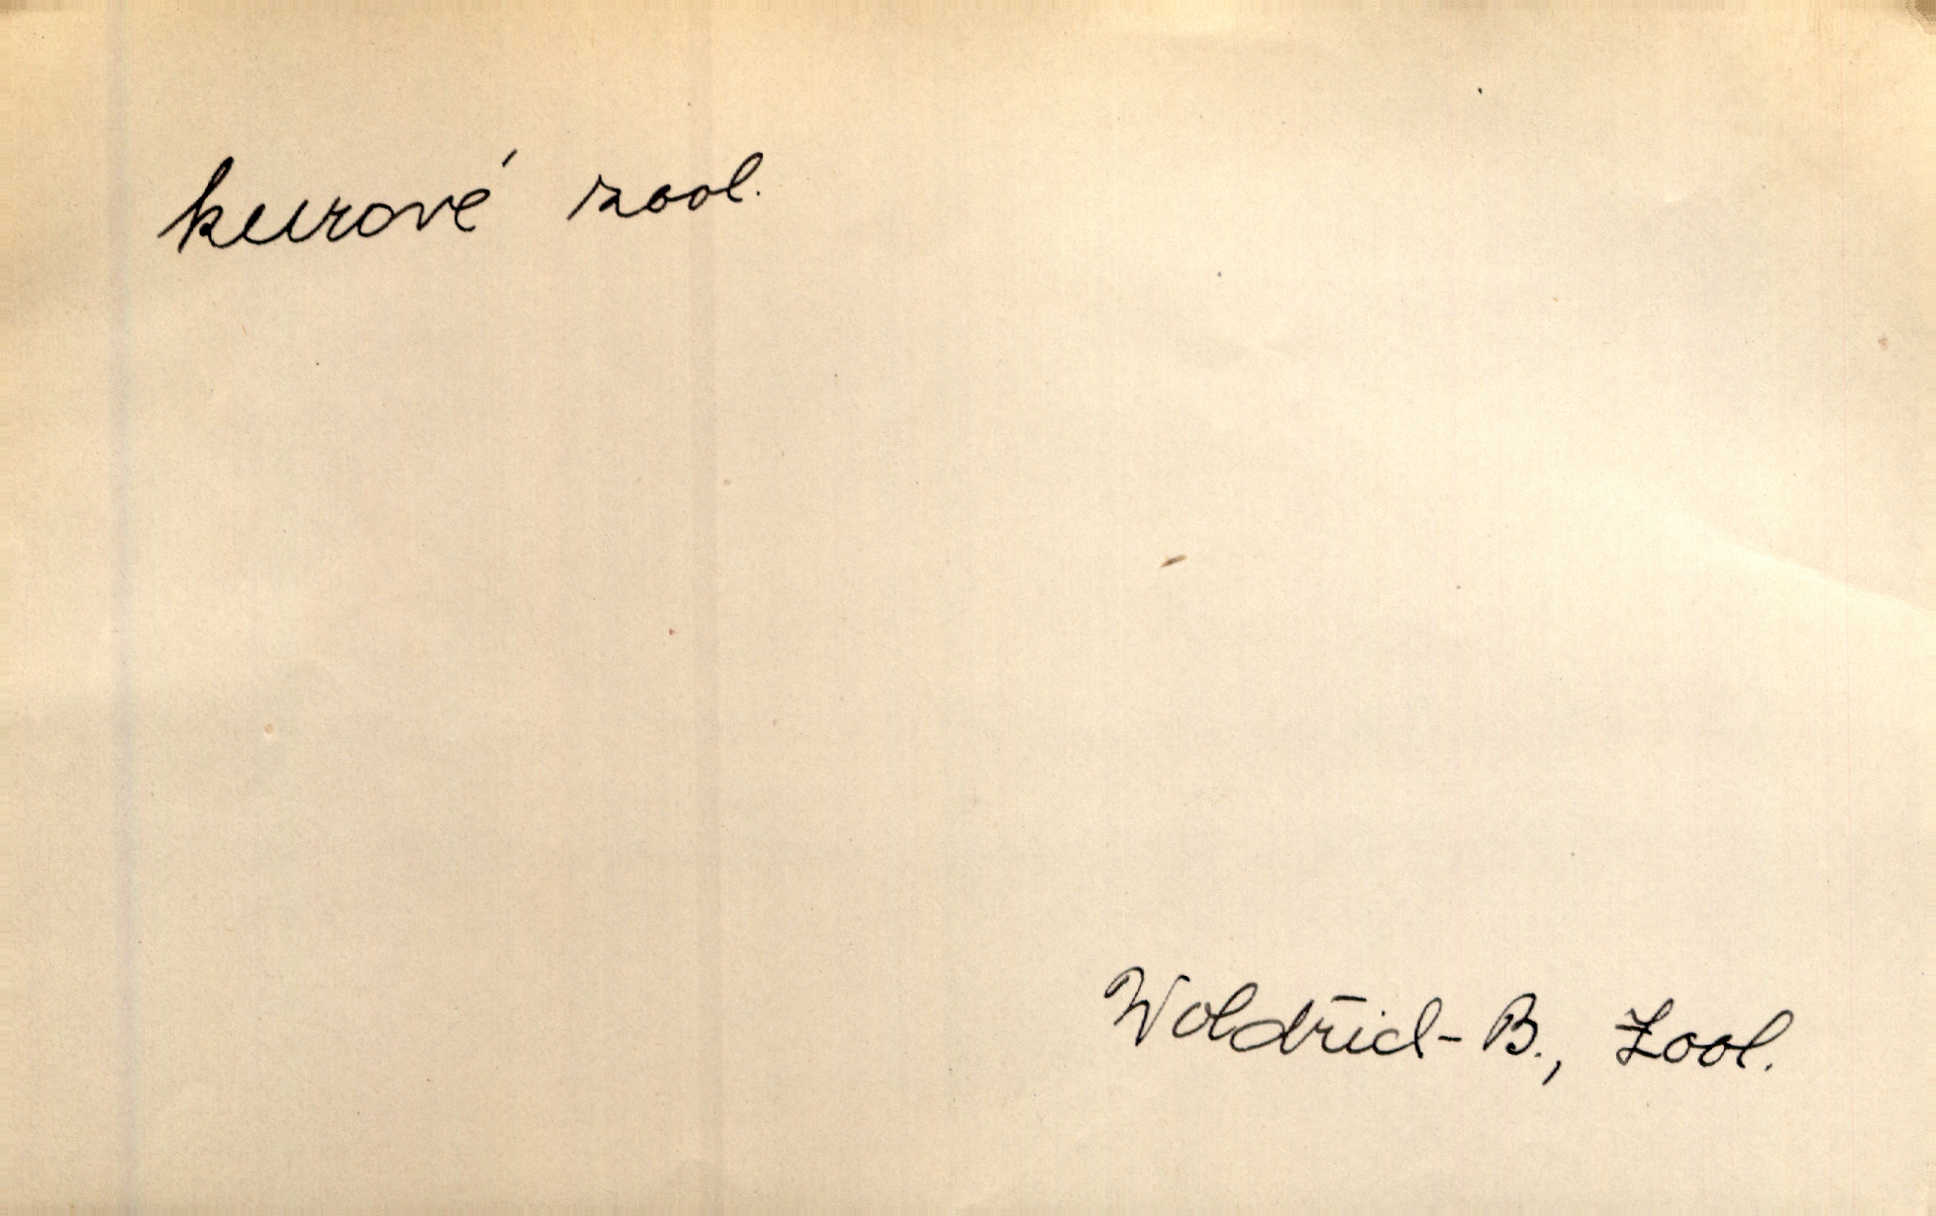 kurové zool.
Woldřich-B., Zool.